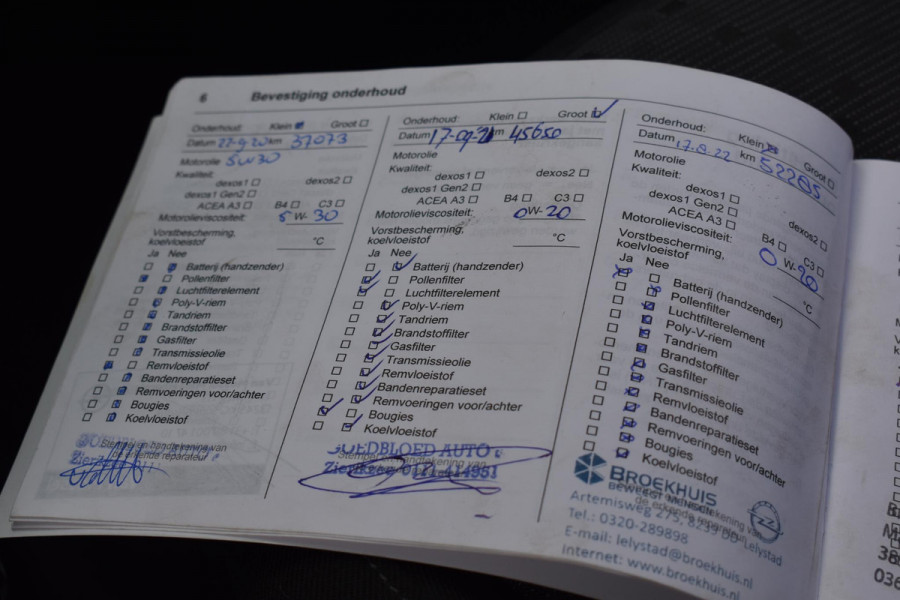 6 Bevestiging onderhoud
Onderhoud: Klein Groot
Datum km 37073
Motorolie 5W30
Kwaliteit:
dexos1 dexos2
dexos1 Gen2
ACEA A3 B4 C3
Motorolieviscositeit: 5 W- 30
Vorstbescherming,
koelvloeistof °C
Ja Nee
Batterij (handzender)
Pollenfilter
Luchtfilterelement
Poly-V-riem
Tandriem
Brandstoffilter
Gasfilter
Transmissieolie
Remvloeistof
Bandenreparatieset
Remvoeringen voor/achter
Bougies
Koelvloeistof
Stempel en handtekening van
de erkende reparateur
Onderhoud: Klein Groot
Datum 17-09-21 km 45650
Motorolie
Kwaliteit:
dexos1 dexos2
dexos1 Gen2
ACEA A3 B4 C3
Motorolieviscositeit: 0 W- 20
Vorstbescherming,
koelvloeistof °C
Ja Nee
Batterij (handzender)
Pollenfilter
Luchtfilterelement
Poly-V-riem
Tandriem
Brandstoffilter
Gasfilter
Transmissieolie
Remvloeistof
Bandenreparatieset
Remvoeringen voor/achter
Bougies
Koelvloeistof
GOEDBLOED AUTO
Onderhoud: Klein Groot
Datum 17.8.22 km 52285
Motorolie
Kwaliteit:
dexos1 dexos2
dexos1 Gen2
ACEA A3 B4 C3
Motorolieviscositeit: 0 W- 20
Vorstbescherming,
koelvloeistof °C
Ja Nee
Batterij (handzender)
Pollenfilter
Luchtfilterelement
Poly-V-riem
Tandriem
Brandstoffilter
Gasfilter
Transmissieolie
Remvloeistof
Bandenreparatieset
Remvoeringen voor/achter
Bougies
Koelvloeistof
BROEKHUIS
BEWEEGT MENSEN
Artemisweg 275, 8239 DD Lelystad
Tel.: 0320-289898
E-mail: lelystad@broekhuis.nl
Internet: www.broekhuis.nl